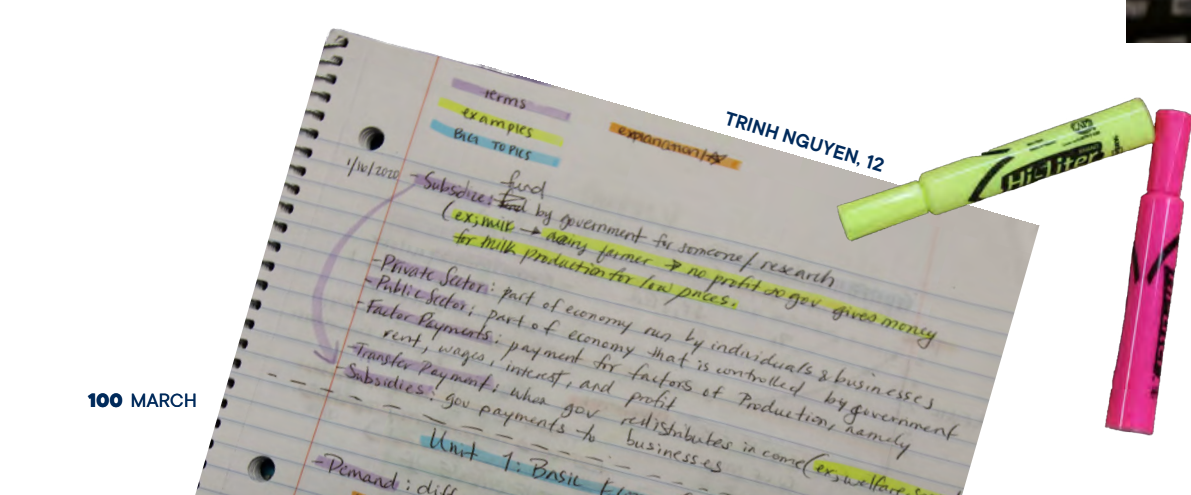 terms
examples
BIG TOPICS
explanation/☆
TRINH NGUYEN, 12
Hi-liter
1/16/2020
fund
- Subsdize: by government for someone/ research
(ex; milk → dairy farmer → no profit so gov gives money
for milk production for low prices.
- Private Sector: part of economy run by individuals & businesses
- Public Sector: part of economy that is controlled by government
- Factor Payments: payment for factors of Production, namely
rent, wages, interest, and profit
- Transfer Payment: when gov redistributes income (ex; welfare,
Subsidies: gov payments to businesses
100 MARCH
Unit 1: Basic
- Demand: diff